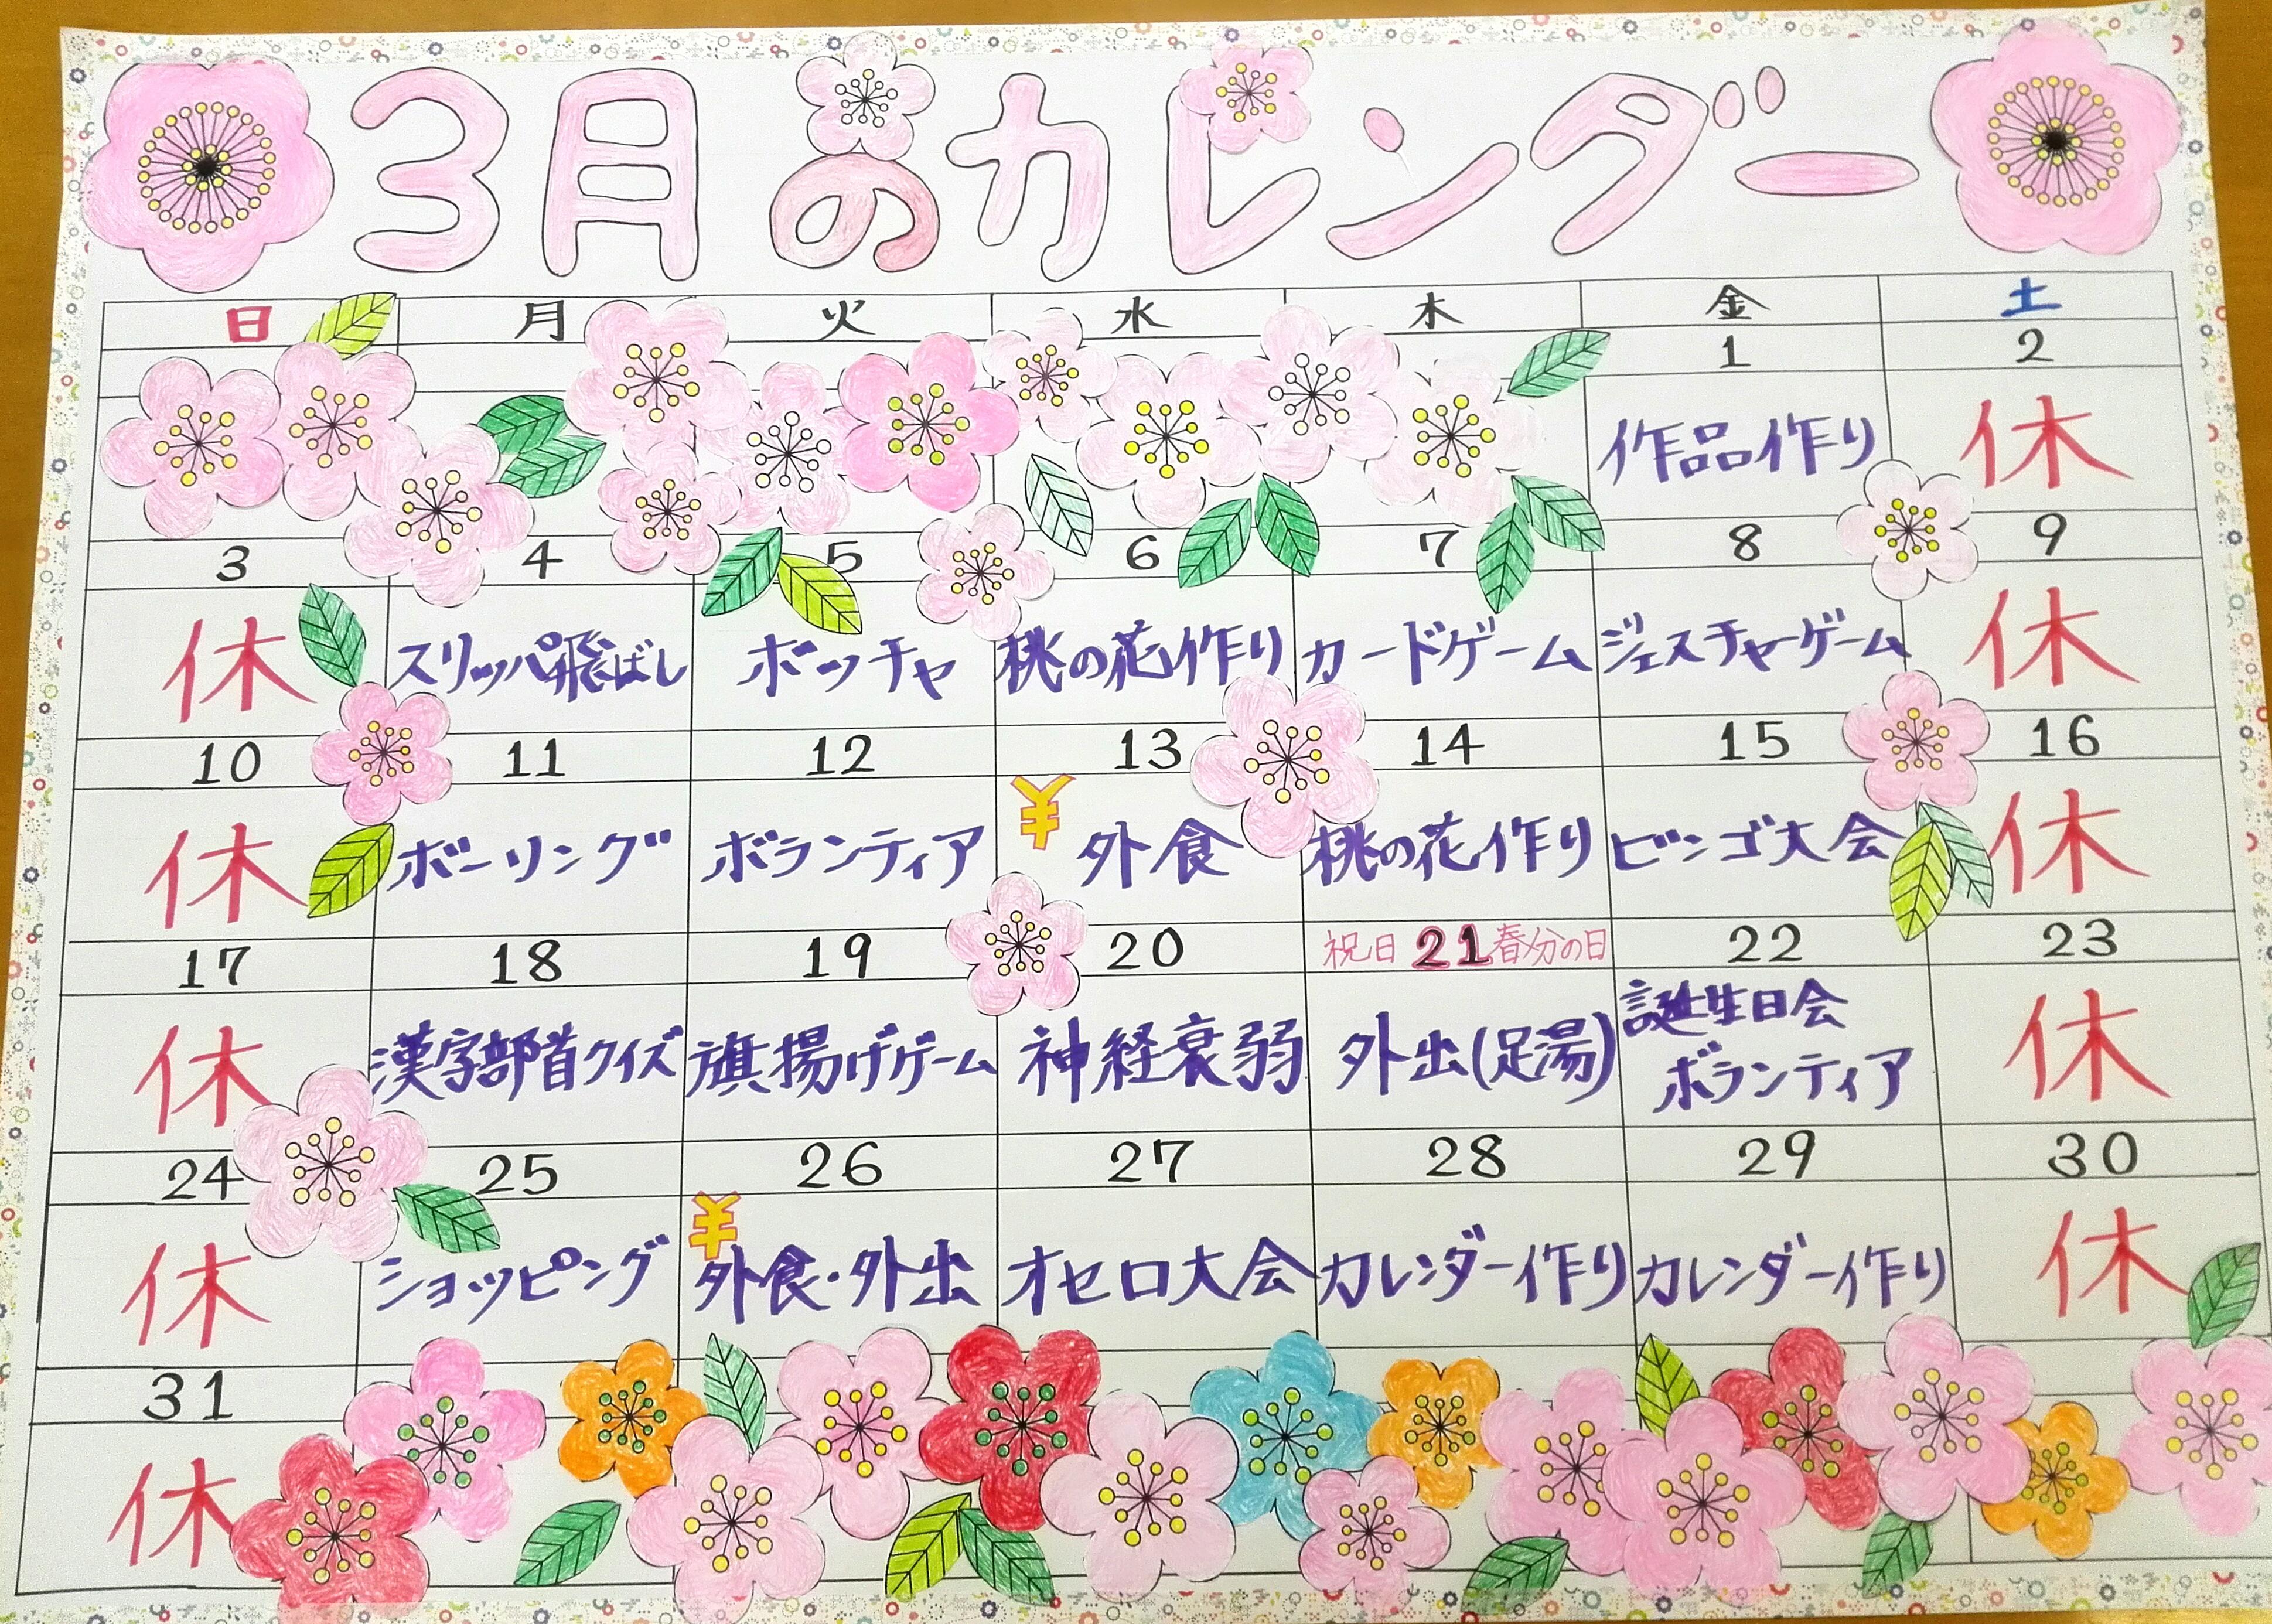 3月のカレンダー
日 月 火 水 木 金 土
1 2
作品作り 休
3 4 5 6 7 8 9
休 スリッパ飛ばし ボッチャ 桃の花作り カードゲーム ジェスチャーゲーム 休
10 11 12 13 14 15 16
休 ボーリング ボランティア ¥ 外食 桃の花作り ビンゴ大会 休
17 18 19 20 祝日 21 春分の日 22 23
休 漢字部首クイズ 旗揚げゲーム 神経衰弱 外出(足湯) 誕生日会 休
ボランティア
24 25 26 27 28 29 30
休 ショッピング ¥ 外食・外出 オセロ大会 カレンダー作り カレンダー作り 休
31
休